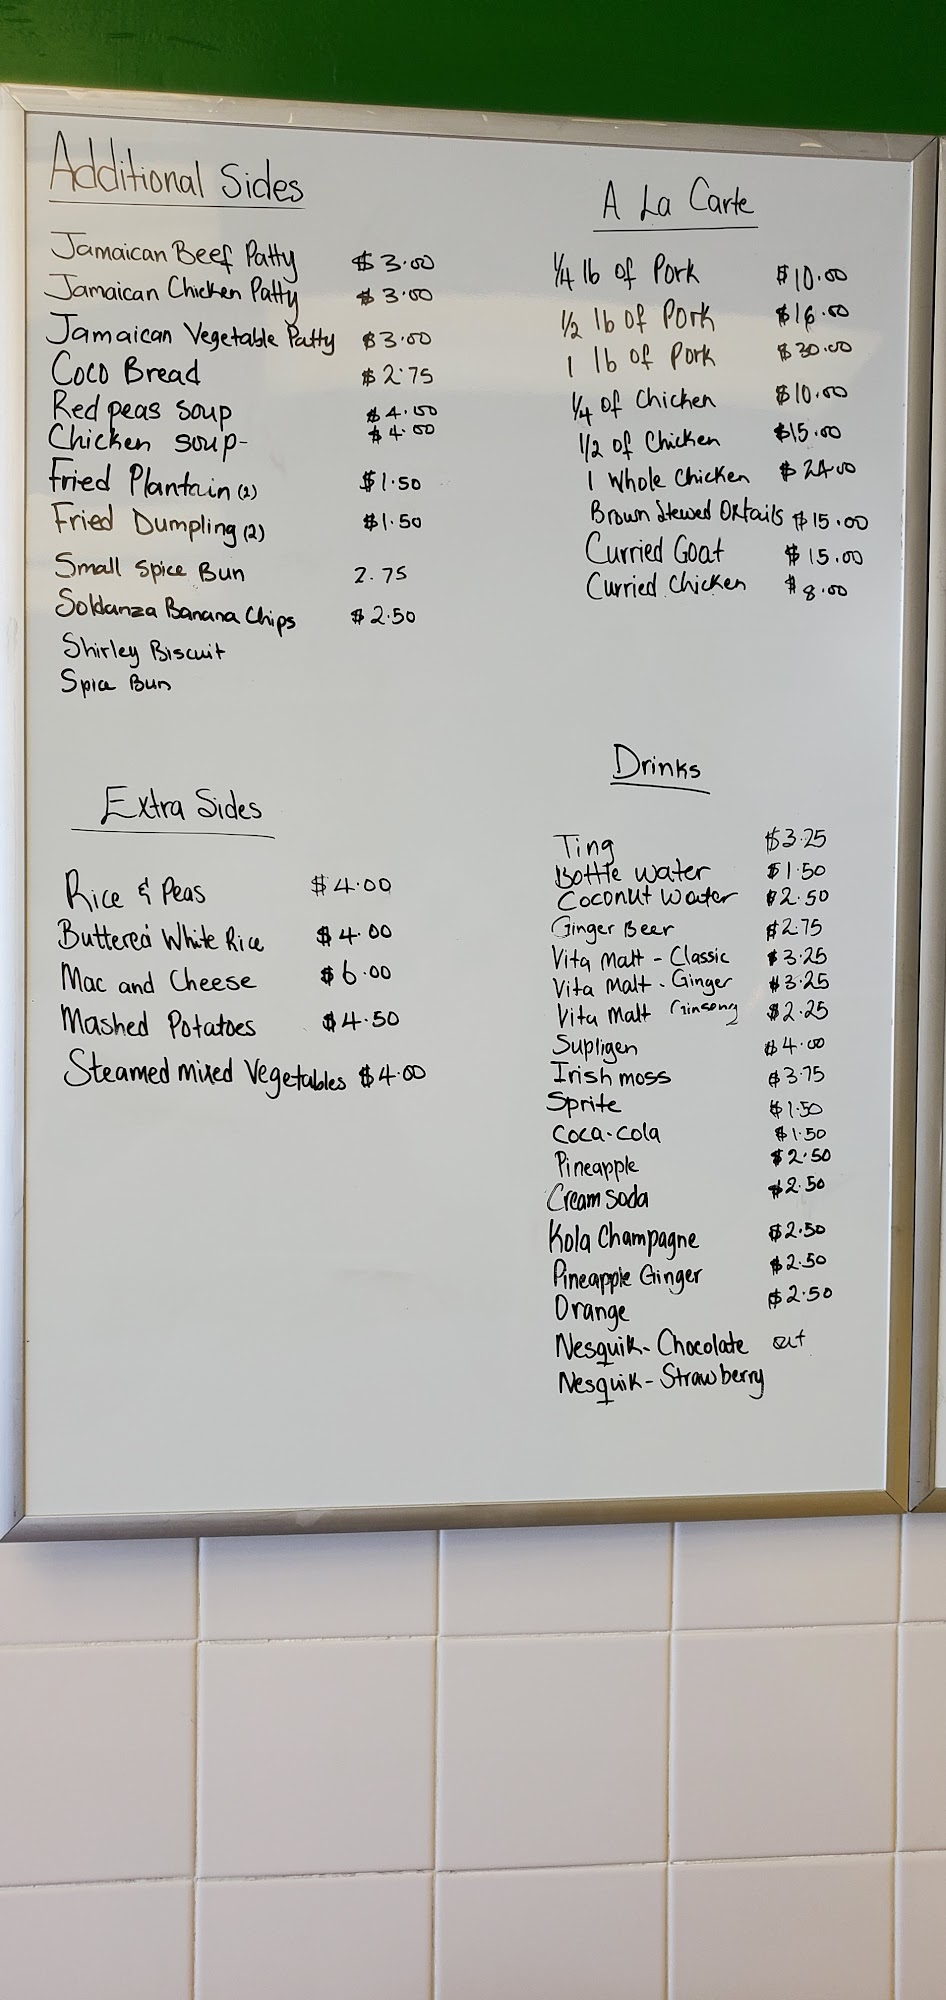 Additional Sides
Jamaican Beef Patty $3.00
Jamaican Chicken Patty $3.00
Jamaican Vegetable Patty $3.00
Coco Bread $2.75
Red peas soup $4.00
Chicken soup- $4.00
Fried Plantain (2) $1.50
Fried Dumpling (2) $1.50
Small Spice Bun 2.75
Soldanza Banana Chips $2.50
Shirley Biscuit
Spice Bun
Extra Sides
Rice & Peas $4.00
Buttered White Rice $4.00
Mac and Cheese $6.00
Mashed Potatoes $4.50
Steamed mixed Vegetables $4.00
A La Carte
1/4 lb of Pork $10.00
1/2 lb of Pork $16.00
1 lb of Pork $30.00
1/4 of Chicken $10.00
1/2 of Chicken $15.00
1 Whole Chicken $24.00
Brown Stewed Oxtails $15.00
Curried Goat $15.00
Curried Chicken $8.00
Drinks
Ting $3.25
Bottle water $1.50
Coconut Water $2.50
Ginger Beer $2.75
Vita Malt - Classic $3.25
Vita Malt - Ginger $3.25
Vita Malt Ginseng $2.25
Supligen $4.00
Irish moss $3.75
Sprite $1.50
Coca-cola $1.50
Pineapple $2.50
Cream Soda $2.50
Kola Champagne $2.50
Pineapple Ginger $2.50
Orange $2.50
Nesquik- Chocolate out
Nesquik- Strawberry